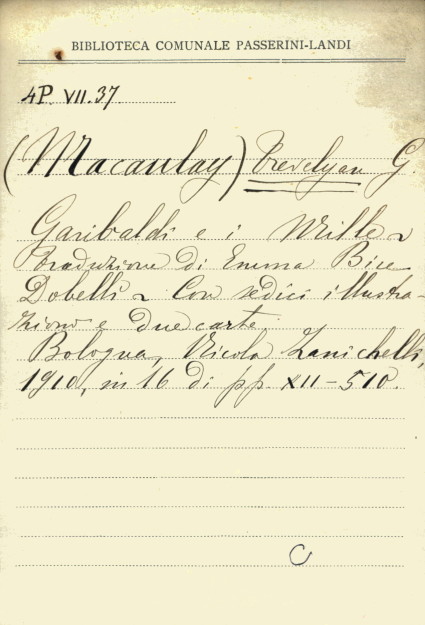 BIBLIOTECA COMUNALE PASSERINI-LANDI
4P. VII. 37.
(Macaulay) Trevelyan G.
Garibaldi e i Mille ~
Traduzione di Emma Bice
Dobelli ~ Con sedici illustra-
zioni e due carte.
Bologna, Nicola Zanichelli,
1910, in 16 di pp. XII-510.
C